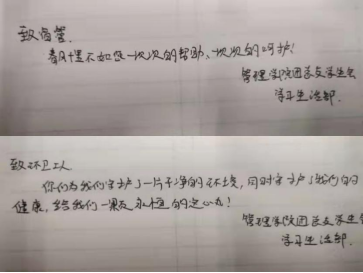 致宿管:
春风十里不如您一次次的帮助、一次次的呵护!
管理学院团总支学生会
学习生活部.
致环卫工
你们为我们守护了一片干净的环境,同时守护了我们的
健康,给我们一颗永恒的定心丸!
管理学院团总支学生会
学习生活部.